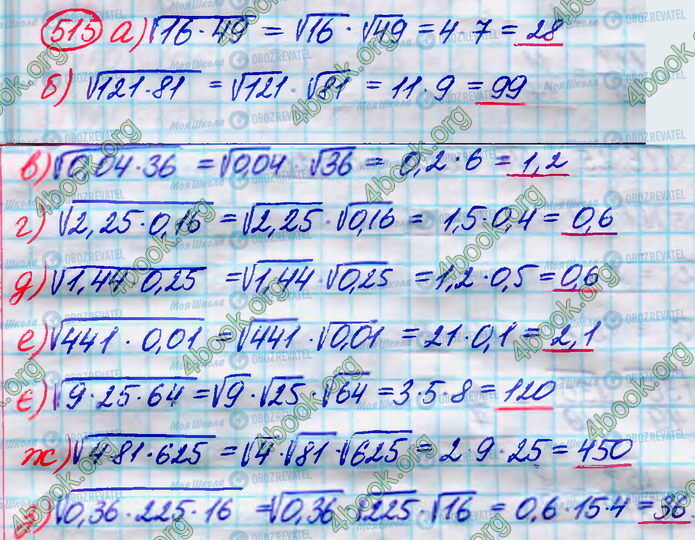 515 а) √16·49 = √16 · √49 = 4 · 7 = 28
б) √121·81 = √121 · √81 = 11 · 9 = 99
в) √0,04·36 = √0,04 · √36 = 0,2·6 = 1,2
г) √2,25·0,16 = √2,25 · √0,16 = 1,5·0,4 = 0,6
д) √1,44·0,25 = √1,44 · √0,25 = 1,2·0,5 = 0,6
е) √441 · 0,01 = √441 · √0,01 = 21·0,1 = 2,1
є) √9·25·64 = √9 · √25 · √64 = 3·5·8 = 120
ж) √4·81·625 = √4 · √81 · √625 = 2·9·25 = 450
з) √0,36·225·16 = √0,36 · √225 · √16 = 0,6·15·4 = 36